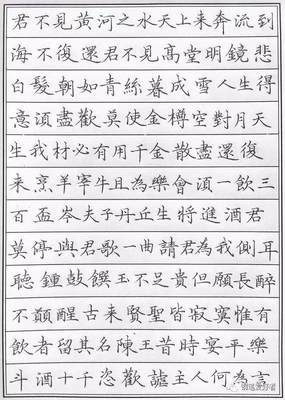 君不見黃河之水天上来奔流到
海不復還君不見髙堂明鏡悲
白髮朝如青絲暮成雪人生得
意須盡歡莫使金樽空對月天
生我材必有用千金散盡還復
来烹羊宰牛且為樂會須一飲三
百盃岑夫子丹丘生將進酒君
莫停與君歌一曲請君為我側耳
聽鍾鼓饌玉不足貴但願長醉
不願醒古来賢聖皆寂寞惟有
飲者留其名陳王昔時宴平樂
斗酒十千恣歡謔主人何為言